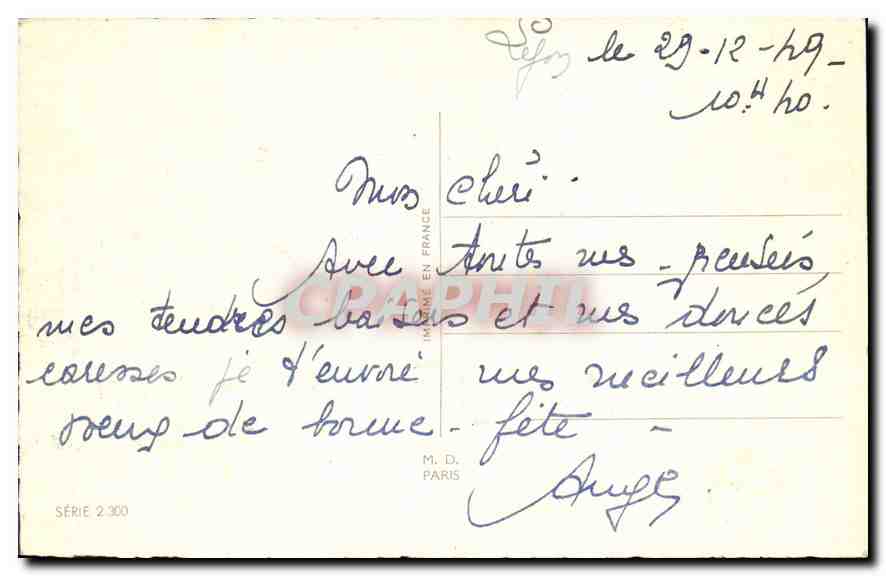 Lyon le 29-12-49-
10.H 40.
Mon Chéri.
Avec toutes mes pensées,
mes tendres baisers et mes douces
caresses je t'envoie mes meilleurs
voeux de bonne fête -
Ange
IMPRIMÉ EN FRANCE
M. D.
PARIS
SÉRIE 2.300
CPAPHIL